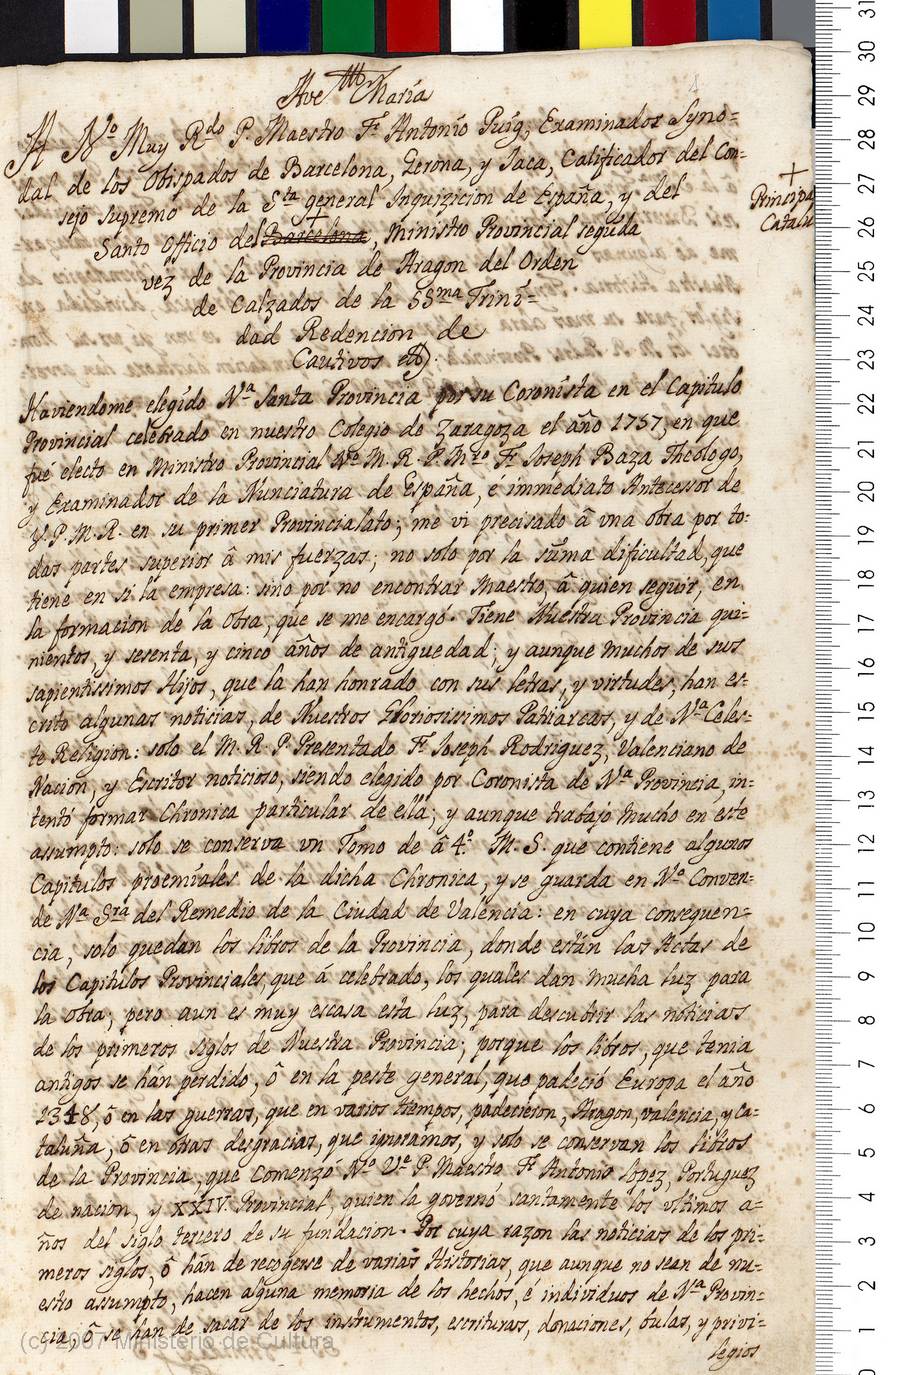 Ave Maria
A N.º Muy R.do P. Maestro F.r Antonio Puig, Examinador Syno=
dal de los Obispados de Barcelona, Gerona, y Jaca, Calificador del Con=
sejo supremo de la S.ta general Inquizicion de España, y del
Santo Officio del + Barcelona, Ministro Provincial segunda
+
Principa
Catalu
vez de la Provincia de Aragon del Orden
de Calzados de la SS.ma Trini=
dad Redencion de
Cautivos
Haviendome elegido N.ª Santa Provincia por su Coronista en el Capitulo
Provincial celebrado en nuestro Colegio de Zaragoza el año 1757, en que
fué electo en Ministro Provincial N.º M. R. P. M.ro F.r Joseph Baza Theologo,
y Examinador de la Nunciatura de España, e immediato Antecessor de
V. P. M. R. en su primer Provincialato; me vi precisado â vna obra por to=
das partes superior â mis fuerzas; no solo por la suma dificultad, que
tiene en si la empresa: sino por no encontrar Maestro, â quien seguir, en
la formacion de la obra, que se me encargó. Tiene Nuestra Provincia qui=
nientos, y sesenta, y cinco años de antiguedad; y aunque muchos de sus
sapientissimos Hijos, que la han honrado con sus letras, y virtudes, han es=
crito algunas noticias, de Nuestros Gloriosissimos Patriarcas, y de N.ª Celes=
te Religion: solo el M. R. P. Presentado F.r Joseph Rodriguez, Valenciano de
Nacion, y Escritor noticioso, siendo elegido por Coronista de N.ª Provincia, in=
tentó formar Chronica particular de ella; y aunque trabajó mucho en este
assumpto: solo se conserva vn Tomo de â 4.º M. S. que contiene algunos
Capitulos proemiales de la dicha Chronica, y se guarda en N.º Conven=
de N.ª S.ra del Remedio de la Ciudad de Valencia: en cuya consequen=
cia, solo quedan los libros de la Provincia, donde están las Actas de
los Capitulos Provinciales, que á celebrado, los quales dan mucha luz para
la obra; pero aun es muy escasa esta luz, para descubrir las noticias
de los primeros siglos de Nuestra Provincia; porque los libros, que tenia
antigos se hán perdido, ô en la peste general, que padeció Europa el año
1348, ô en las guerras, que en varios tiempos, padecieron, Aragon, valencia, y Ca=
taluña, ô en otras desgracias, que ignoramos, y solo se conservan los libros
de la Provincia, que comenzó N.º V.e P. Maestro F.r Antonio lopez, Portuguez
de nacion, y XXIV. Provincial, quien la governó santamente los vltimos a=
ños del siglo tercero de su fundacion. Por cuya razon las noticias de los pri=
meros siglos, ô hán de recogerse de varias Historias, que aunque no sean de nu=
estro assumpto, hacen alguna memoria de los hechos, é individuos de N.ª Provin=
cia, ô se han de sacar de los instrumentos, escrituras, donaciones, bulas, y privi=
legios
(c) 2007 Ministerio de Cultura
31
30
29
28
27
26
25
24
23
22
21
20
19
18
17
16
15
14
13
12
11
10
9
8
7
6
5
4
3
2
1
0